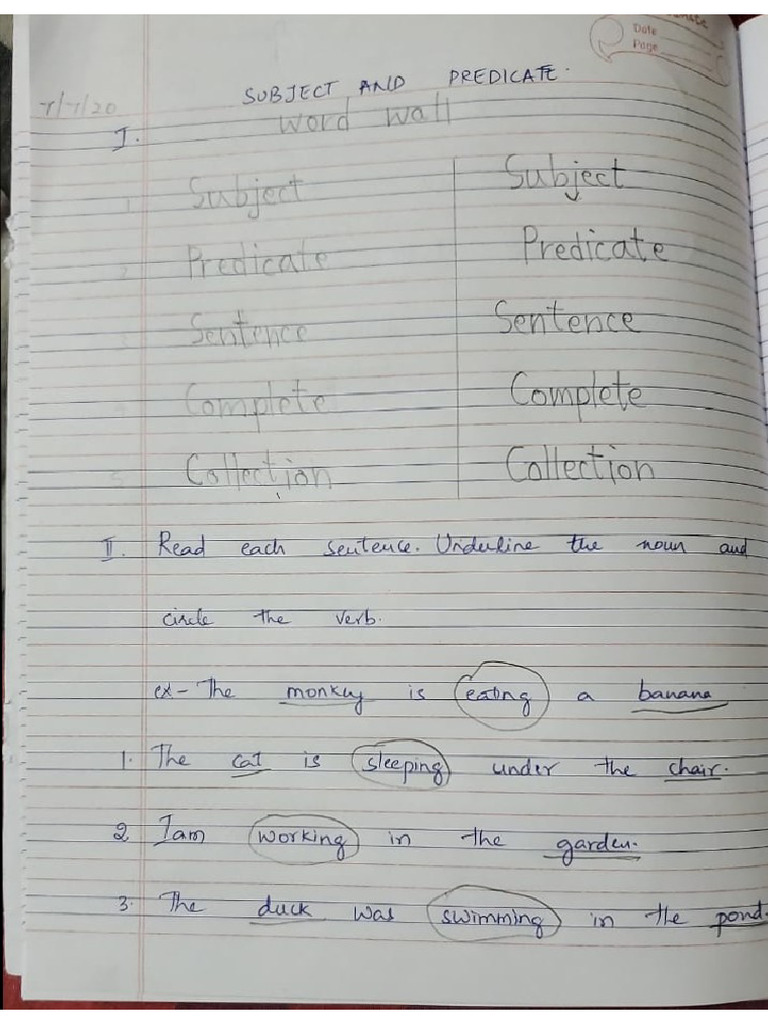 Date
Page
7/7/20
SUBJECT AND PREDICATE.
I. Word Wall
1. Subject Subject
2. Predicate Predicate
3. Sentence Sentence
4. Complete Complete
5. Collection Collection
II. Read each sentence. Underline the noun and
circle the verb.
ex- The monkey is eating a banana
1. The cat is sleeping under the chair.
2. I am working in the garden.
3. The duck was swimming in the pond.